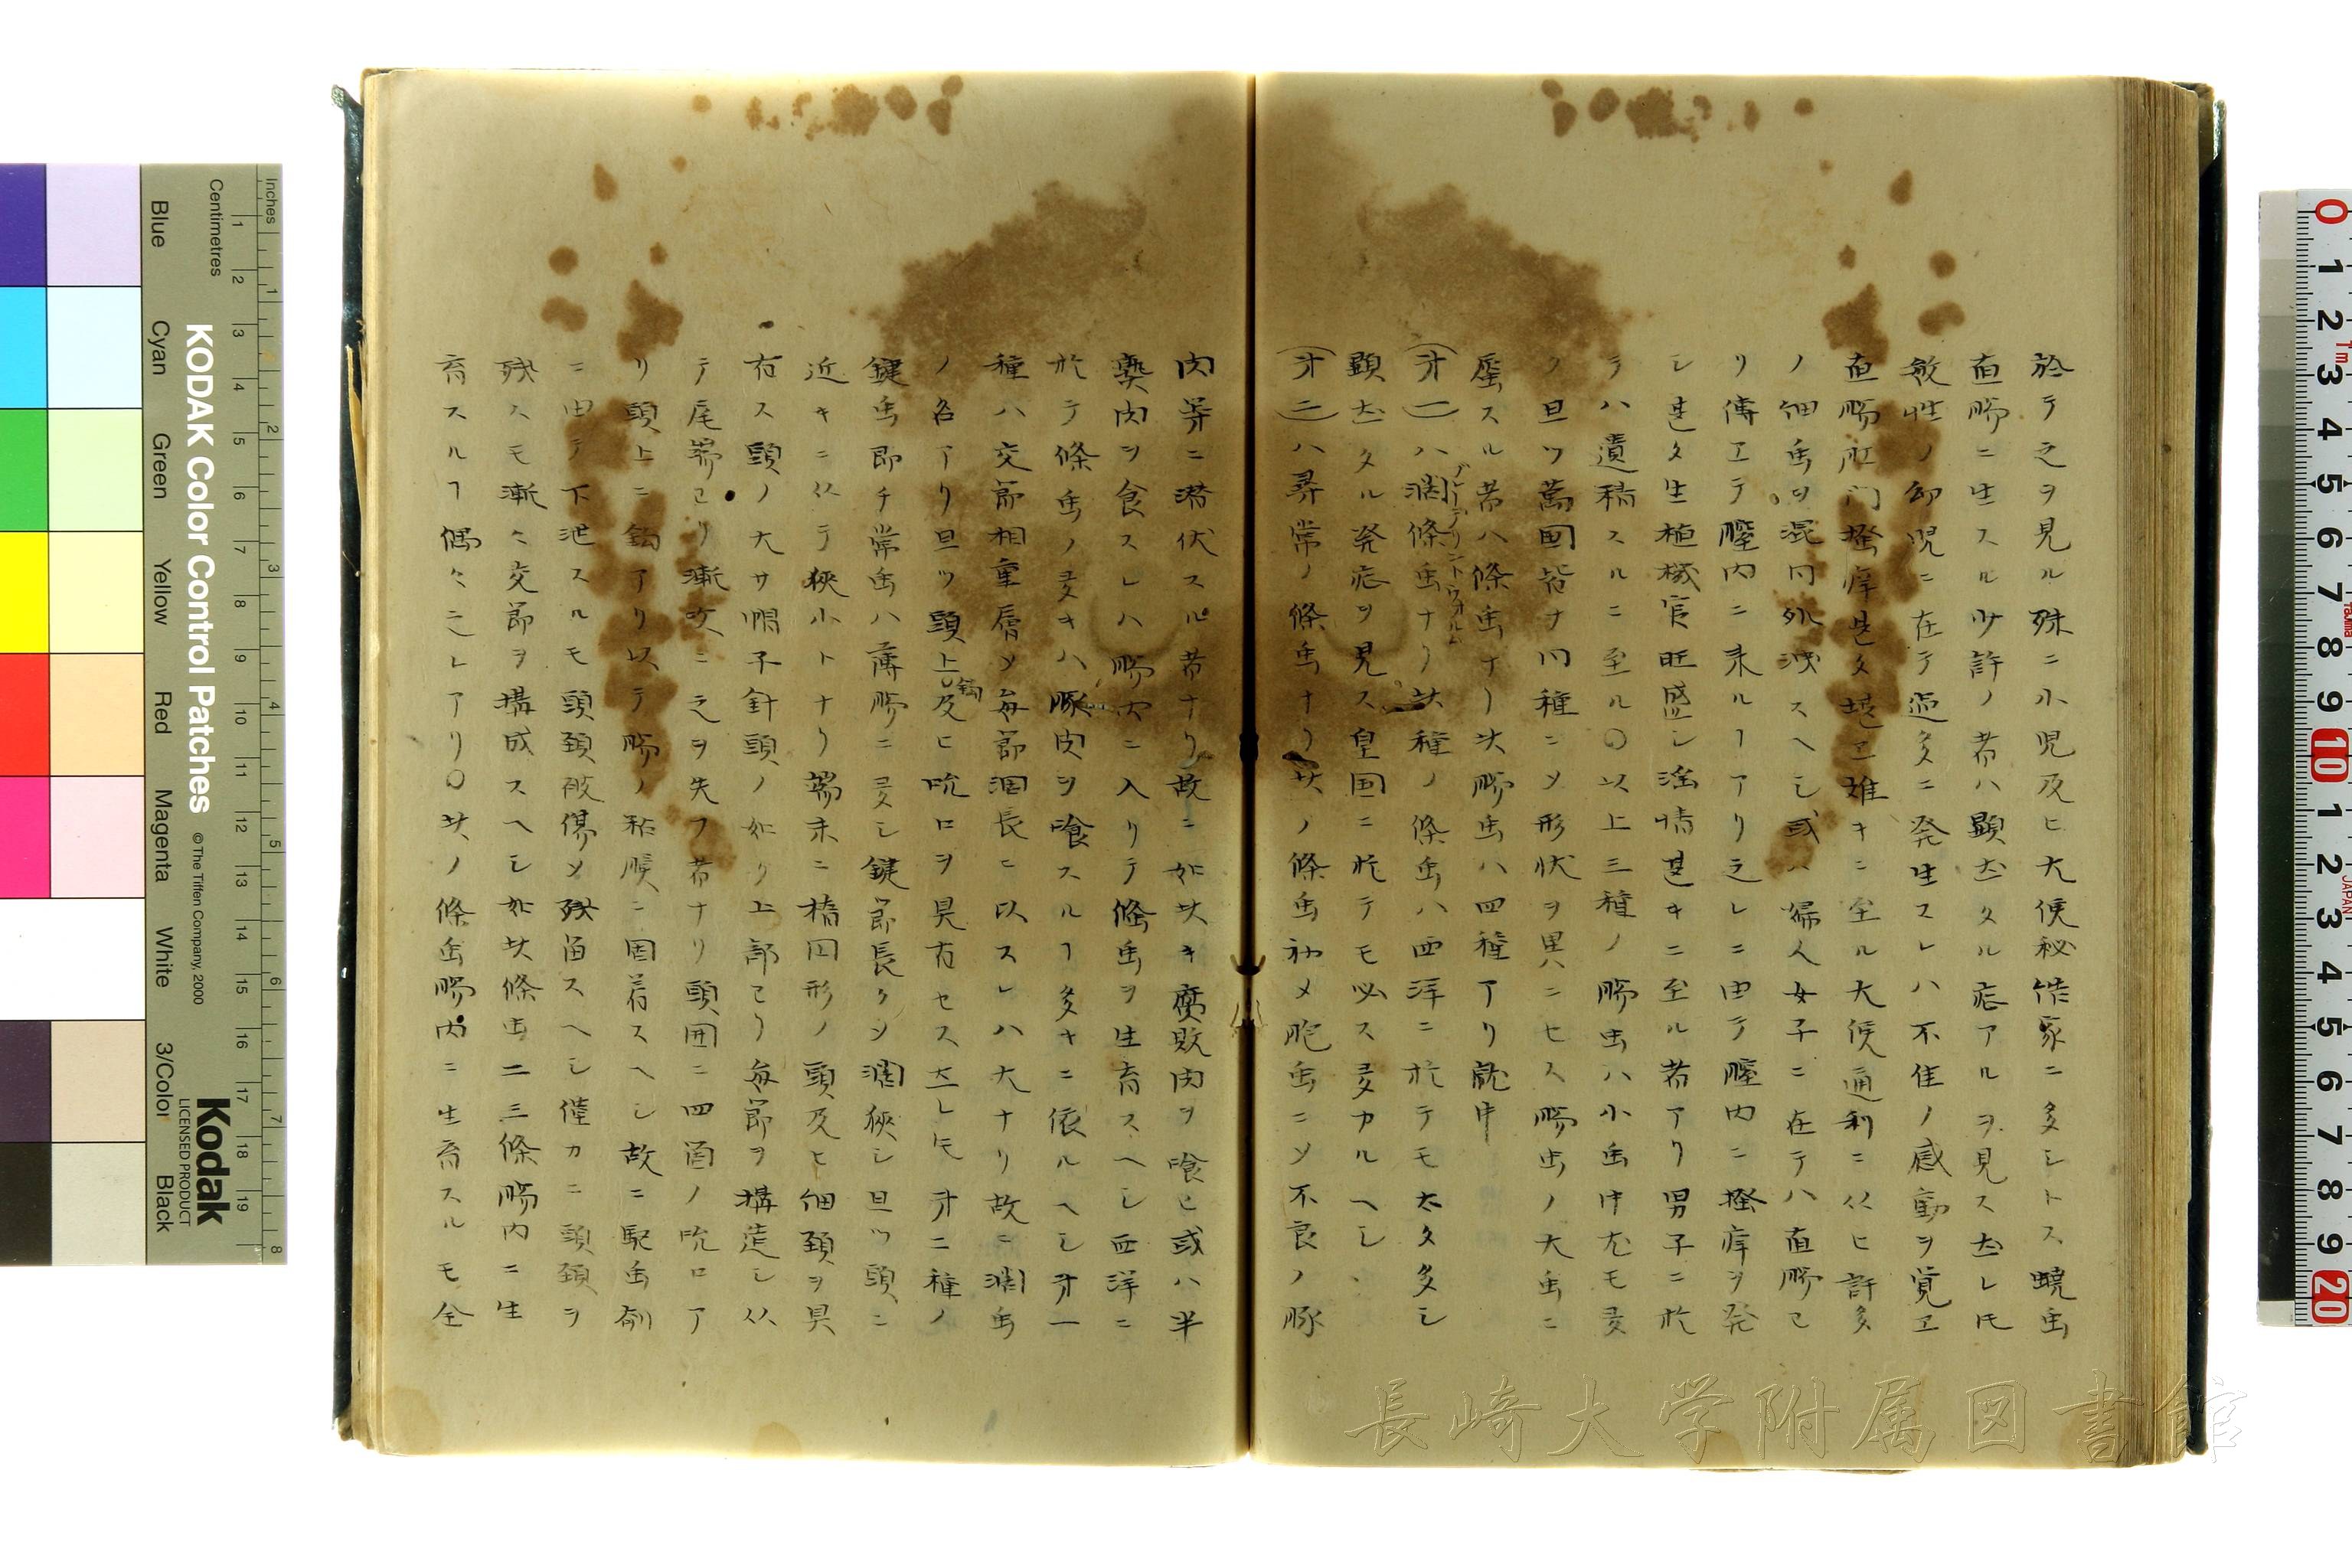 於テ之ヲ見ル殊ニ小児及ヒ大便秘結家ニ多シトス蟯虫
直腸ニ生スル少許ノ者ハ顕著タル症アルヲ見ス然レ𪜈
敏性ノ幼児ニ在テ過多ニ発生スレハ不佳ノ感動ヲ覚ヱ
直腸肛門掻痒甚タ堪ヱ難キニ至ル大便通利ニ從ヒ許多
ノ細虫ヲ混同外泄スヘシ或ハ婦人女子ニ在テハ直腸ヨ
リ傳ヱテ膣内ニ来ルヿアリ之レニ由テ膣内ニ掻痒ヲ発
シ甚タ生植機官旺盛シ淫情甚キニ至ル者アリ男子ニ於
テハ遺精スルニ至ル〇以上三種ノ腸虫ハ小虫中尤モ多
ク且ツ萬国皆ナ同種ニメ形状ヲ異ニセス腸虫ノ大虫ニ
属スル者ハ條虫ナリ此腸虫ハ四種アリ就中
(才一)ハ濶條虫ナリ此種ノ條虫ハ西洋ニ於テモ太タ多シ
ブレーデリントウォルム
顕著タル発症ヲ見ス皇国ニ於テモ必ス多カルヘシ
(才二)ハ尋常ノ條虫ナリ此ノ條虫初メ胞虫ニメ不良ノ豚
肉等ニ潜伏スル者ナリ故ニ如此キ腐敗肉ヲ喰ヒ或ハ半
𤋎肉ヲ食スレハ腸内ニ入リテ條虫ヲ生育スヘシ西洋ニ
於テ條虫ノ多キハ豚肉ヲ喰スルヿ多キニ依ルヘシ才一
種ハ交節相重層メ毎節濶長ニ以スレハ大ナリ故ニ濶虫
ノ名アリ且ツ頭上鈎及ヒ吮口ヲ具有セス然レ𪜈才二種ノ
鍵虫即チ常虫ハ薄腸ニ多シ鍵節長クメ濶狹シ且ツ頭ニ
近キニ从テ狹小トナリ端末ニ楕円形ノ頭及ヒ細頚ヲ具
有ス頭ノ大サ帽子針頭ノ如ク上部ヨリ毎節ヲ構造シ从
テ尾端ヨリ漸次ニ之ヲ失フ者ナリ頭囲ニ四箇ノ吮口ア
リ頭上ニ鈎アリ以テ腸ノ粘膜ニ固着スヘシ故ニ駆虫剤
ニ由テ下泄スルモ頭頚破傷メ残留スヘシ僅カニ頭頚ヲ
残スモ漸々交節ヲ構成スヘシ如此條虫二三條腸内ニ生
育スルヿ偶々之レアリ〇此ノ條虫腸内ニ生育スルモ全
KODAK Color Control Patches
© The Tiffen Company, 2000
Kodak
LICENSED PRODUCT
Inches
Centimetres
Blue
Cyan
Green
Yellow
Red
Magenta
White
3/Color
Black
長崎大学附属図書館
JAPAN